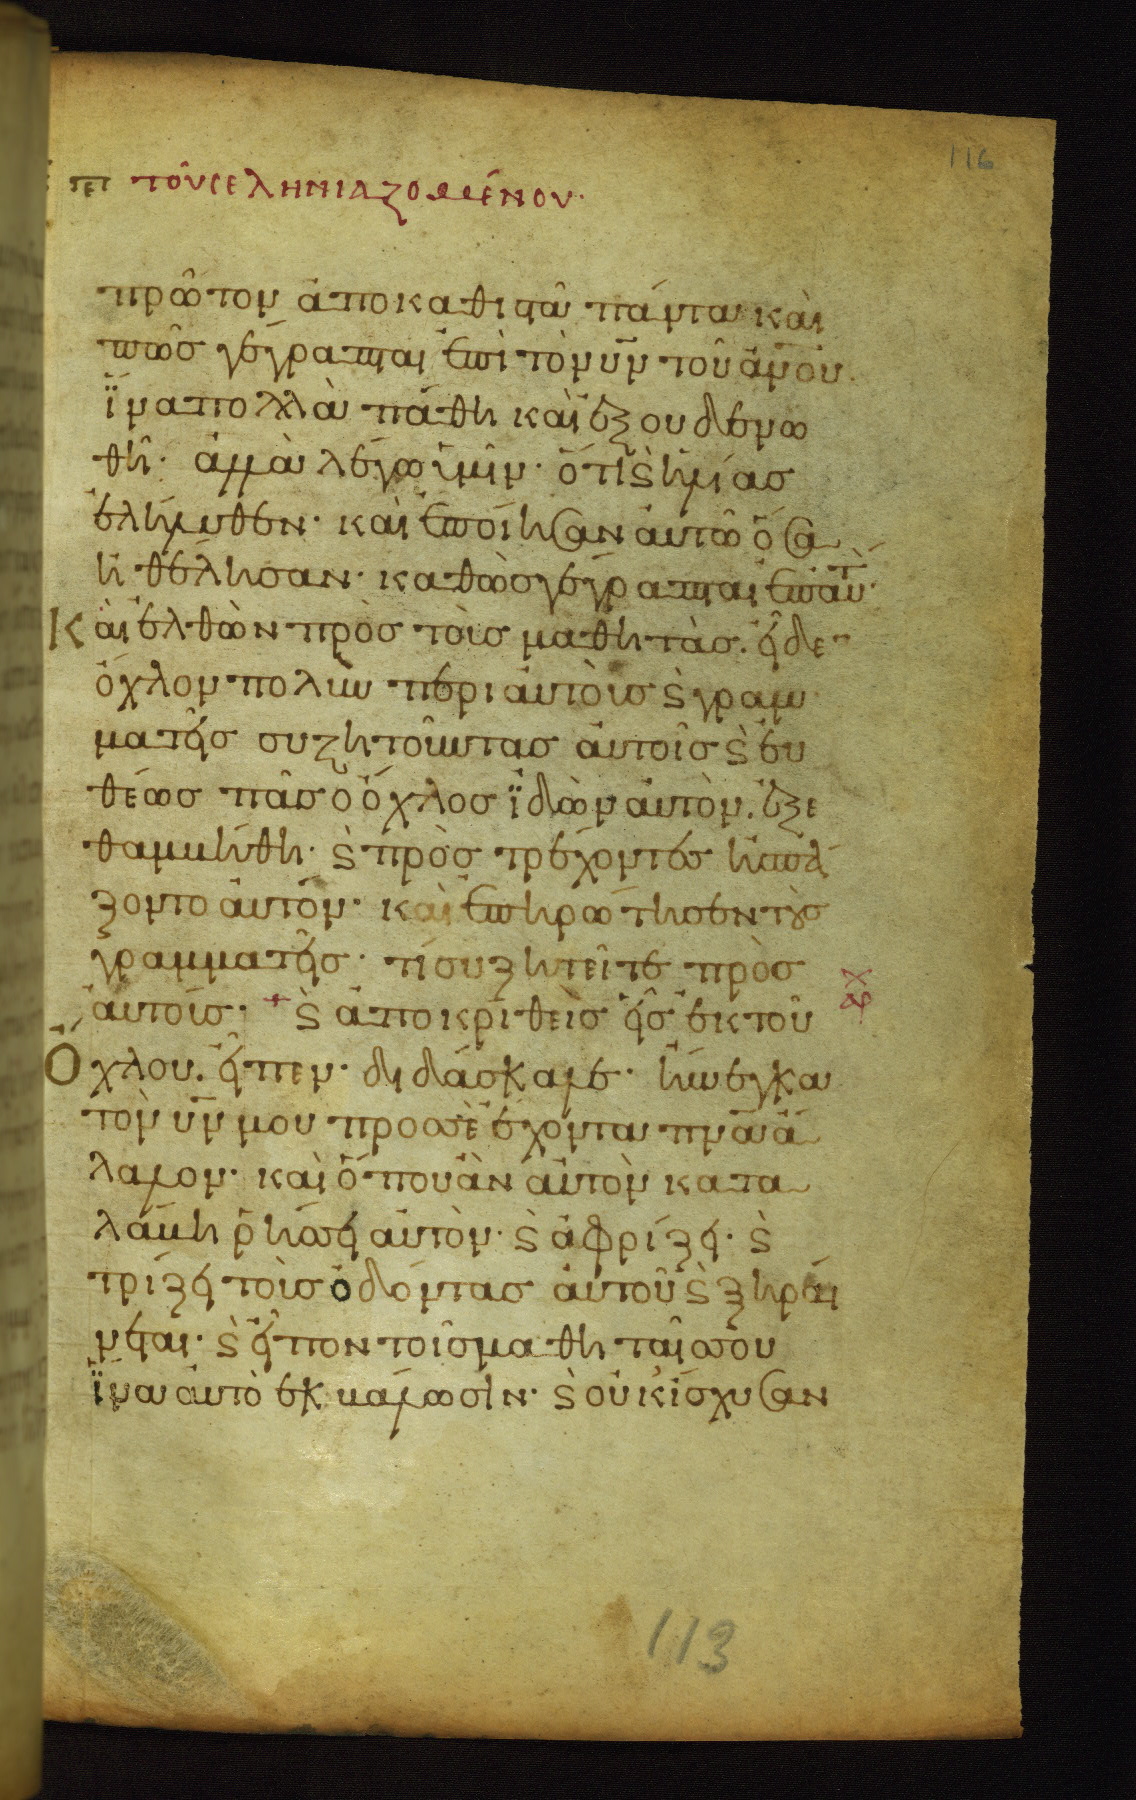 116
πει τοῦ σεληνιαζομένου·
πρῶτον ἀποκαθιστᾶ πάντα καὶ
πῶς γέγραπται ἐπὶ τὸν υν τοῦ ανου·
ἵνα πολλὰ πάθη καὶ ἐξουδενω
θῆ· ἀλλὰ λέγω ὑμῖν· ὅτι ϛ ἡλίας
ἐλήλυθεν· καὶ ἐποίησαν αὐτῶ ὅσα
ἠθέλησαν· καθὼς γέγραπται ἐπ αὐτ·
Καὶ ἐλθὼν πρὸς τοὺς μαθητὰς. εἶδεν
ὄχλον πολὺν περι αὐτοὺς ϛ γραμ
ματεῖς συζητοῦντας αὐτοῖς ϛ εὐ
θέως πᾶς ὁ ὄχλος ἰδὼν αὐτὸν. ἐξε
θαμβήθη· ϛ πρὸς τρέχοντες ἠσπά
ζοντο αὐτόν· καὶ ἐπηρώτησεν τοὺς
γραμματεῖς· τί συζητεῖτε πρὸς
αὐτούς· + ϛ ἀποκριθεὶς εἷς ἐκ τοῦ
Ὄχλου. εἶπεν· διδάσκαλε· ἤνεγκα
τὸν υν μου προσσὲ ἔχοντα πνα ἄ
λαλον· καὶ ὅπου ἂν αὐτὸν κατα
λάβη ῥήσσει αὐτὸν· ϛ ἀφρίζει· ϛ
τρίζει τοὺς ὀδόντας αὐτοῦ ϛ ξηραί
νεται· ϛ εἶπον τοῖς μαθηταῖς σου
ἵνα αὐτὸ ἐκβάλωσιν· ϛ οὐκ ἴσχυσαν
113